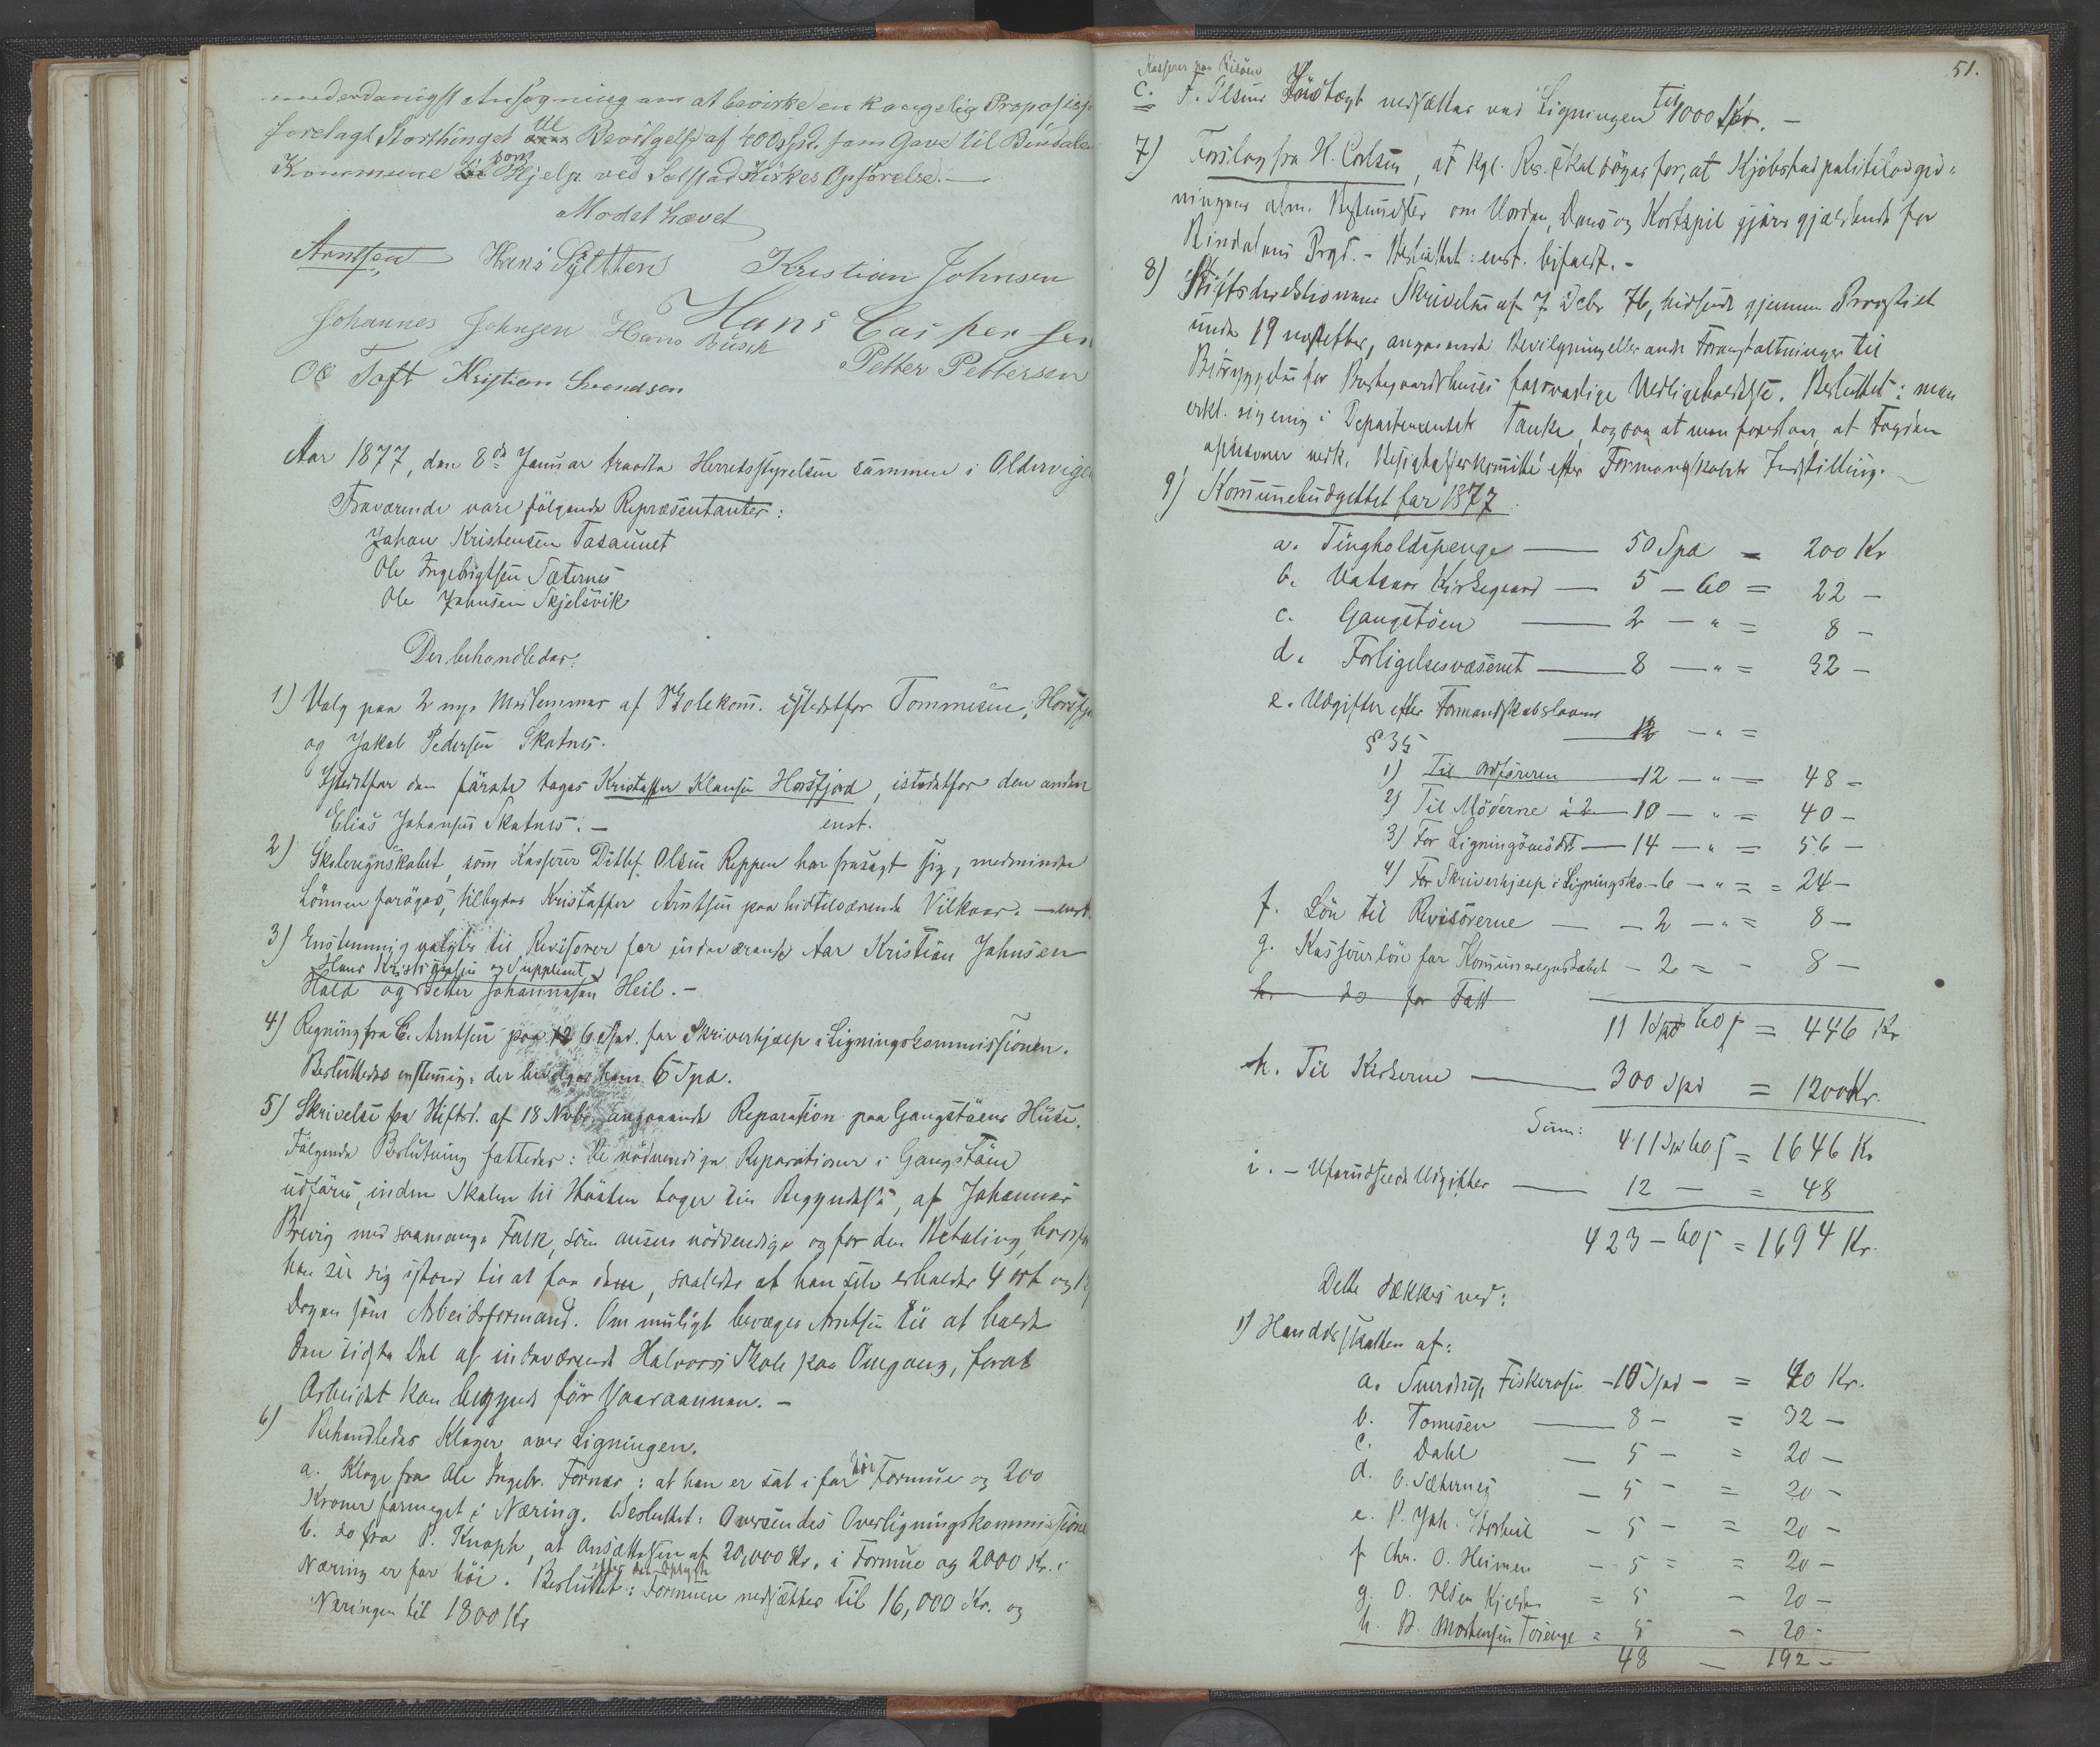 underdanigst Ansøgning om at bevirke en kongelig Proposisjo
forelagt Storthinget til Bevilgelse af 400 Spd. som Gave til Bindalen
Kommune som Hjelp ved Solstad Kirkes Opførelse.—
Mødet hævet
Arntsen Hans Sylthen Kristian Johnsen
Johannes Johnsen Hans Busch Hans Caspersen
Ole Toft Kristian Svendsen Petter Pettersen
Aar 1877, den 8de Januar traadte Herredsstyrelsen sammen i Oldervigen
Fraværende vare følgende Repræsentanter:
Johan Kristensen Tosaunet
Ole Ingebrigtsen Sæternes
Ole Johnsen Skjelsvik
Der behandledes:
1) Valg paa 2 nye Medlemmer af Skolekom. istedetfor Tommesen, Horsfj
og Jakob Pedersen Skotnes.
Istedetfor den første toges Kristoffer Klausen Horsfjord, istedetfor den anden
Elias Johansen Skotnes.— enst.
2) Skoleregnskabet, som Kasserer Ditlef Olsen Reppen har frasagt sig, medmindre
Lønnen forøges, tilbydes Kristoffer Arntsen paa hidtilværende Vilkaar. — enst.
3) Enstemmig valgtes til Revisorer for indeværende Aar Kristian Johnsen
Hans Kristiansen og Supplient
Hald og Petter Johannesen Heil.—
4) Regning fra C. Arntsen paa 12 6 Spd. for Skriverhjælp i Ligningskommissionen.
Besluttedes enstemmig: der bevilges ham 6 Spd.
5) Skrivelse fra Stiftsd. af 18 Novbr. angaaende Reparation paa Gangstøens Huse.
Følgende Beslutning fattedes: De nødvendige Reparationer i Gangstøen
udføres, inden Skolen til Høsten tager sin Begyndelse, af Johannes
Brevig med saamange Folk, som ansees nødvendige og for den Betaling, hvorfor
han ser sig istand til at faa dem, saaledes at han selv erholder 4 ort og 12
Dagen som Arbeidsformand. Om muligt bevæges Arntsen til at holde
den sidste Del af indeværende Halvaars Skole paa Omgang, forat
Arbeidet kan begyndes før Vaaraannen.—
6) Behandledes Klager over Ligningen.
a. Klage fra Ole Ingebr. Fornes: at han er sat i for høi Formue og 200
Kroner formeget i Næring. Besluttet: Oversendes Overligningskommissione
b. do fra P. Knoph, at Ansættelsen af 20,000 Kr. i Formue og 2000 Kr. i
Næring er for høi. Besluttet: Formuen nedsættes til 16,000 Kr. og
Næringen til 1800 Kr
51.
Kasserer paa Lisøen
c. F. Olsens Indtægt nedsættes ved Ligningen til 1000 Kr.—
7) Forslag fra H. Carlsen, at kgl. Res. skal søges for, at Kjøbstadpolitilovgiv=
ningens alm. Bestemmelser om Uorden, Dans og Kortspil gjøres gjældende for
Bindalens Prgd.— Besluttet: enst. bifaldt.—
8) Stiftsdirektionens Skrivelse af 7 Decbr 76, hidsendt gjennem Provstiet
under 19 næstefter, angaaende Bevilgning eller andre Foranstaltninger til
Betryggelse for Prestegaardshuses forsvarlige Vedligeholdelse. Besluttet: man
erkl. sig enig i Departementets Tanke, dog saa at man foreslaar, at Fogden
opnevner vedk. Besigtelseskomitté efter Formandskabets Indstilling.—
9) Kommunebudgettet for 1877.
a. Tingholdspenge — 50 Spd = 200 Kr
b. Vatsaas Kirkegaard — 5 — 60 = 22 —
c. Gangstøen — 2 — " = 8 —
d. Forligelsesvæsenet — 8 — " = 32 —
e. Udgifter efter Formandskabslovens
§ 35 — 12 — " =
1) Til Ordføreren — 12 — " = 48 —
2) Til Møderne i 2 — 10 — " = 40 —
3) For Ligningsmødet — 14 — " = 56 —
4) For Skriverhjælp i Ligningsko.— 6 — " = 24 —
f. Løn til Revisorerne — 2 — " = 8 —
g. Kassererløn for Kommuneregnskabet — 2 = — 8 —
h. do for Fatt
111 Spd 60 s = 446 Kr
h. Til Kirkerne — 300 Spd = 1200 Kr.
Sum: 411 Spd 60 s = 1646 Kr
i. — Uforudseede Udgifter — 12 — = 48
423 — 60 s = 1694 Kr.
Dette dækkes ved:
1) Handelsskatten af:
a. Sverdrup, Fiskerosen — 10 Spd — = 40 Kr.
b. Tomesen — 8 — = 32 —
c. Dahl — 5 — = 20 —
d. O. Sæternes — 5 — = 20 —
e. P. Joh. Storheil — 5 — = 20 —
f Chr. O. Heimen — 5 = = 20 —
g. O. Olsen Kjelde = 5 — 20 —
h. B. Mortensen Terænge = 5 — 20 —
48 — 192 —